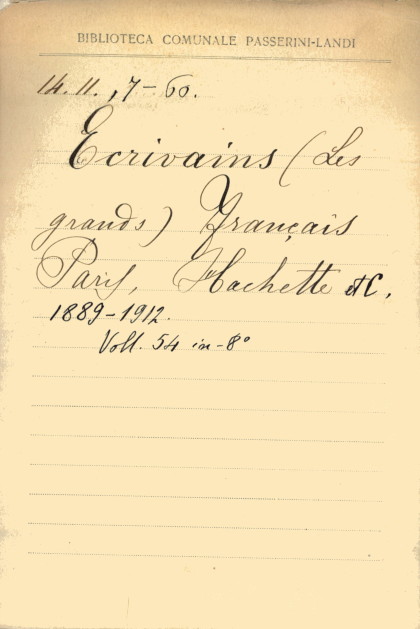 BIBLIOTECA COMUNALE PASSERINI-LANDI
14. 11. , 7 – 60.
Ecrivains (Les
grands) Français
Paris, Hachette et C.
1889-1912.
Voll. 54 in-8°